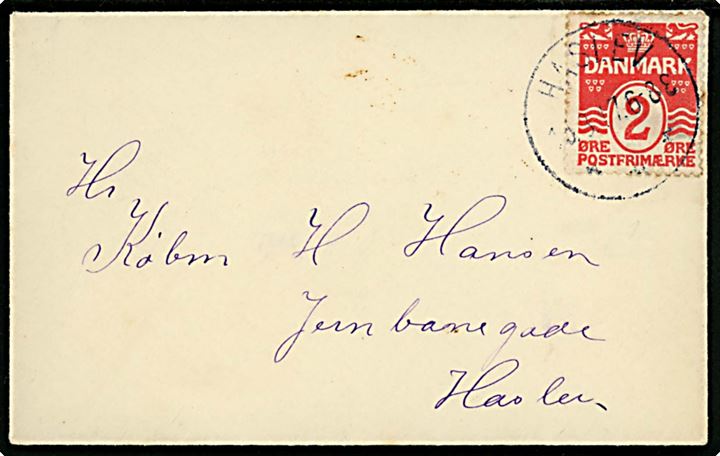 HASLEV
DANMARK
2
ØRE ØRE
POSTFRIMÆRKE
Hr
Købm H Hansen
Jernbanegade
Haslev